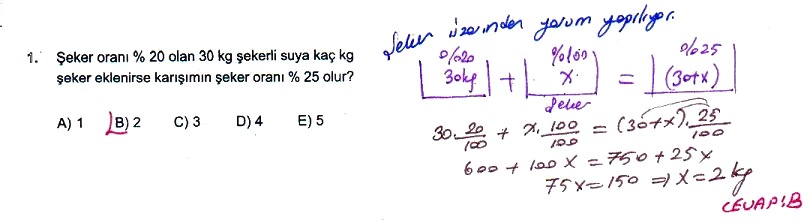 1. Şeker oranı % 20 olan 30 kg şekerli suya kaç kg
şeker eklenirse karışımın şeker oranı % 25 olur?
A) 1 B) 2 C) 3 D) 4 E) 5
Şeker üzerinden yorum yapılıyor.
%20 %100 %25
30kg + x = (30+x)
şeker
30.20/100 + x.100/100 = (30+x).25/100
600 + 100x = 750 + 25x
75x=150 ⇒ x=2 kg
CEVAP:B